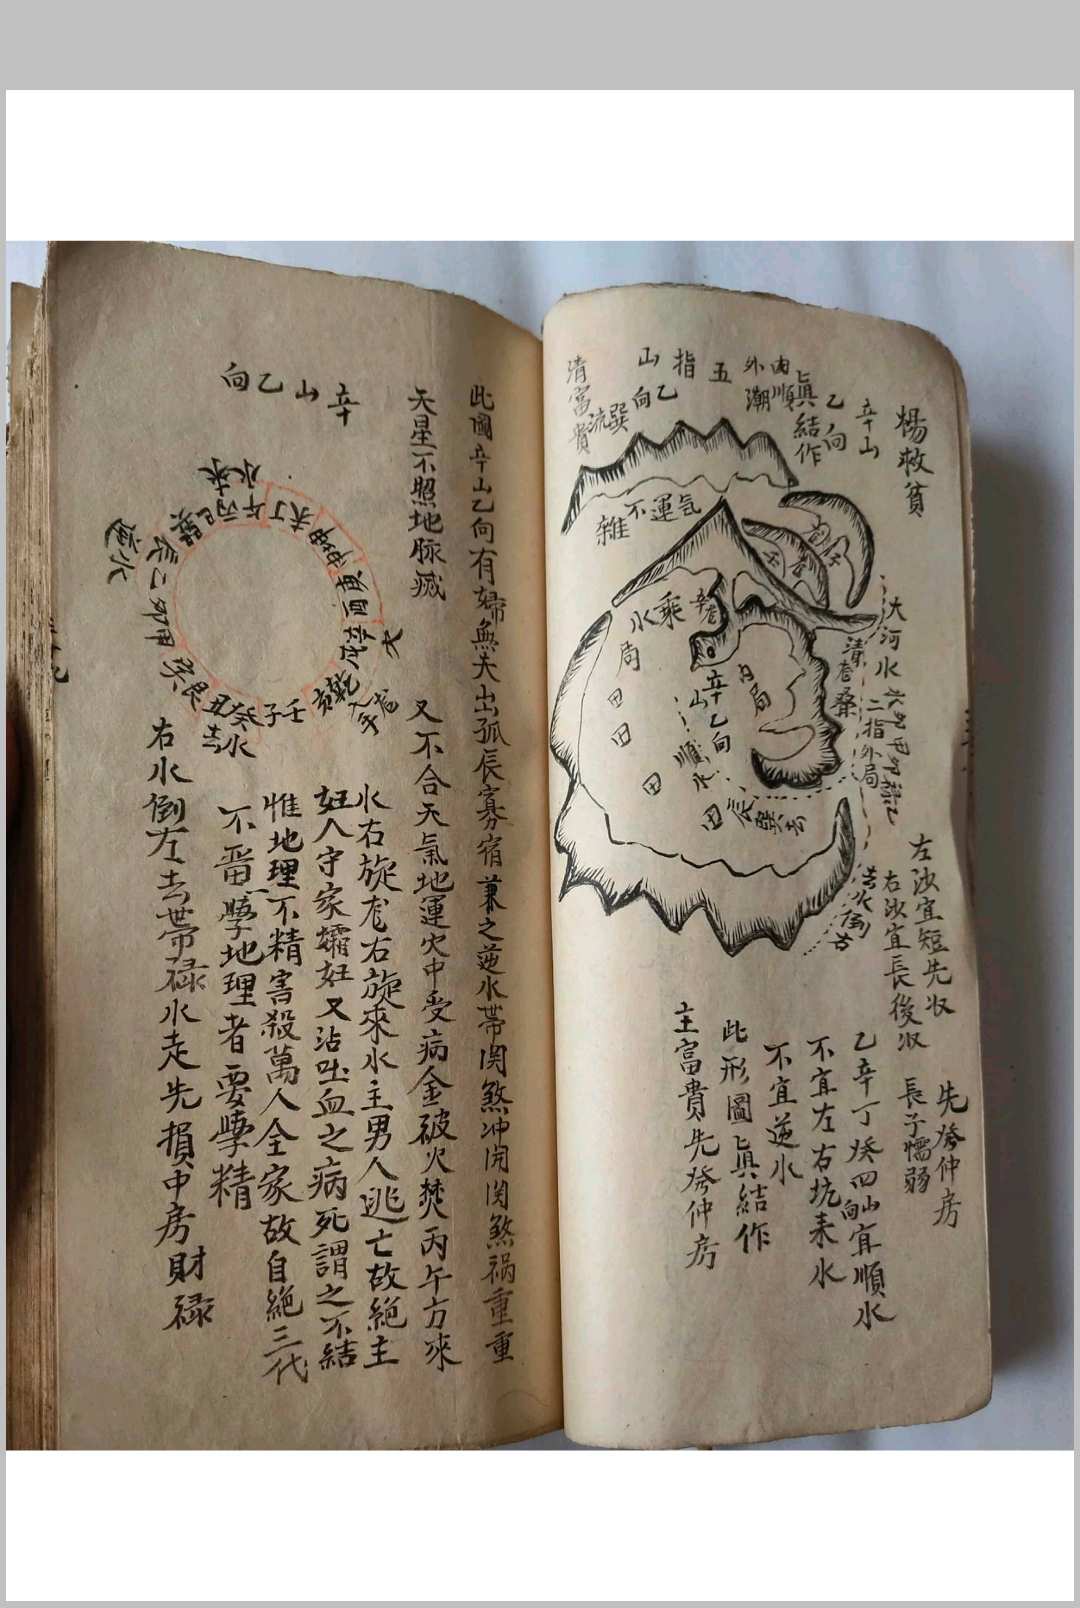 楊救貧
辛山
乙向
真結作
内順
外潮
五
指
山
乙向
巽流
清富貴
雜不運気
大河水
二指外局
乘水局
内局
辛山乙向
順水
田
田
田
田
左汝宜短先収
右汝宜長後収
先發仲房
長子懦弱
乙辛丁癸四山向宜順水
不宜左右坑来水
不宜逆水
此形圖真結作
主富貴先發仲房
此圖辛山乙向有婦無夫出孤長寡宿兼之逆水帯関煞冲開関煞禍重重
天星不照地脉滅
又不合天氣地運火中受病金破火焚丙午方來
水右旋龙右旋來水主男人逃亡故絶主
妇人守家孀妇又沾吐血之病死謂之不結
惟地理不精害殺萬人全家故自絶三代
不晋學地理者要學精
右水倒左去帯禄水走先損中房財禄
辛山乙向
水來
巽巳丙午丁未坤
庚酉辛戌乾亥
壬子癸丑艮
甲卯乙辰
去水